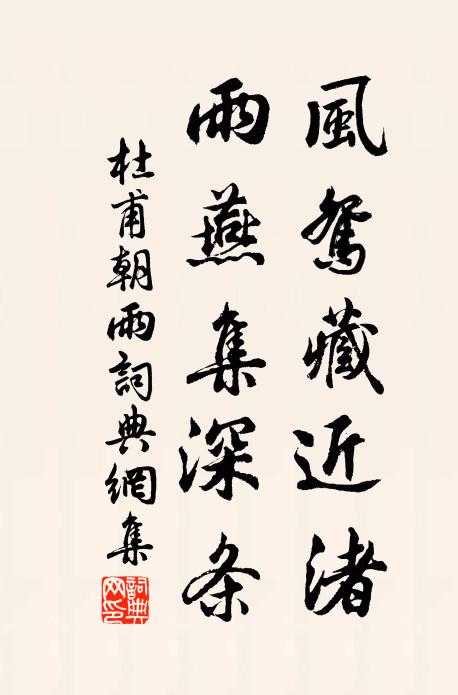 風鴛藏近渚
雨燕集深条
杜甫朝雨詞典網集
詞典网印